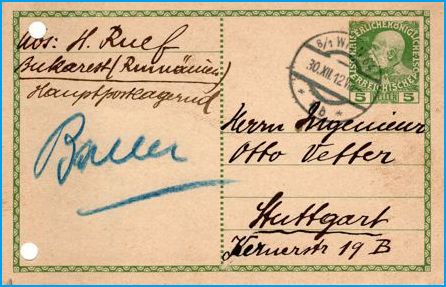 Abs: H. Ruef
Bukarest (Rumänien)
Hauptpostlagernd
Bauer
6/1 WIEN
30.XII.12
* b *
KAISERLICHE KÖNIGLICHE ÖSTERREICHISCHE
5 5
Herrn Ingenieur
Otto Vetter
Stuttgart
Kernerstr 19 B